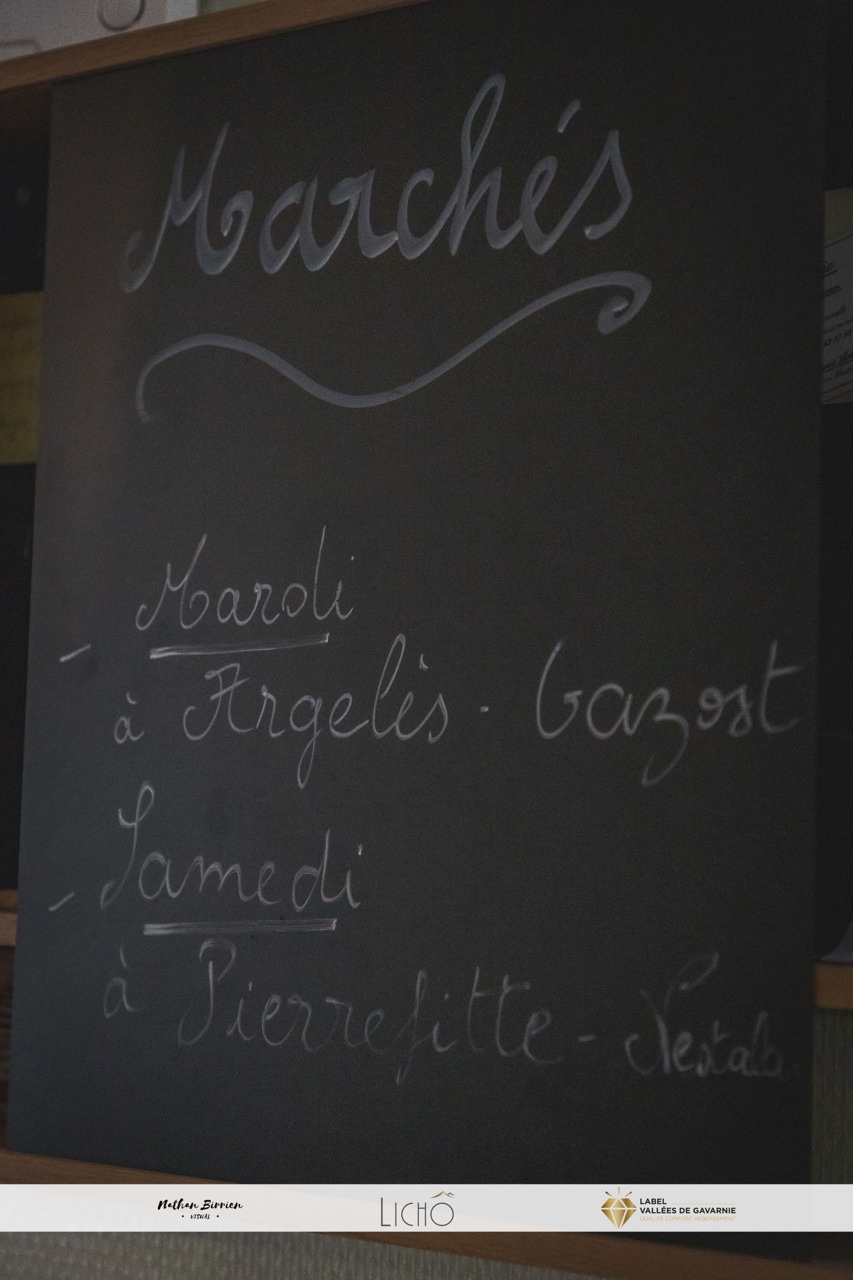 Marchés
- Mardi
à Argelès - Gazost
- Samedi
à Pierrefitte - Nestalas
Nathan Birrien
• VISUAL •
LICHÔ
LABEL
VALLÉES DE GAVARNIE
QUALITÉ CONFORT HÉBERGEMENT